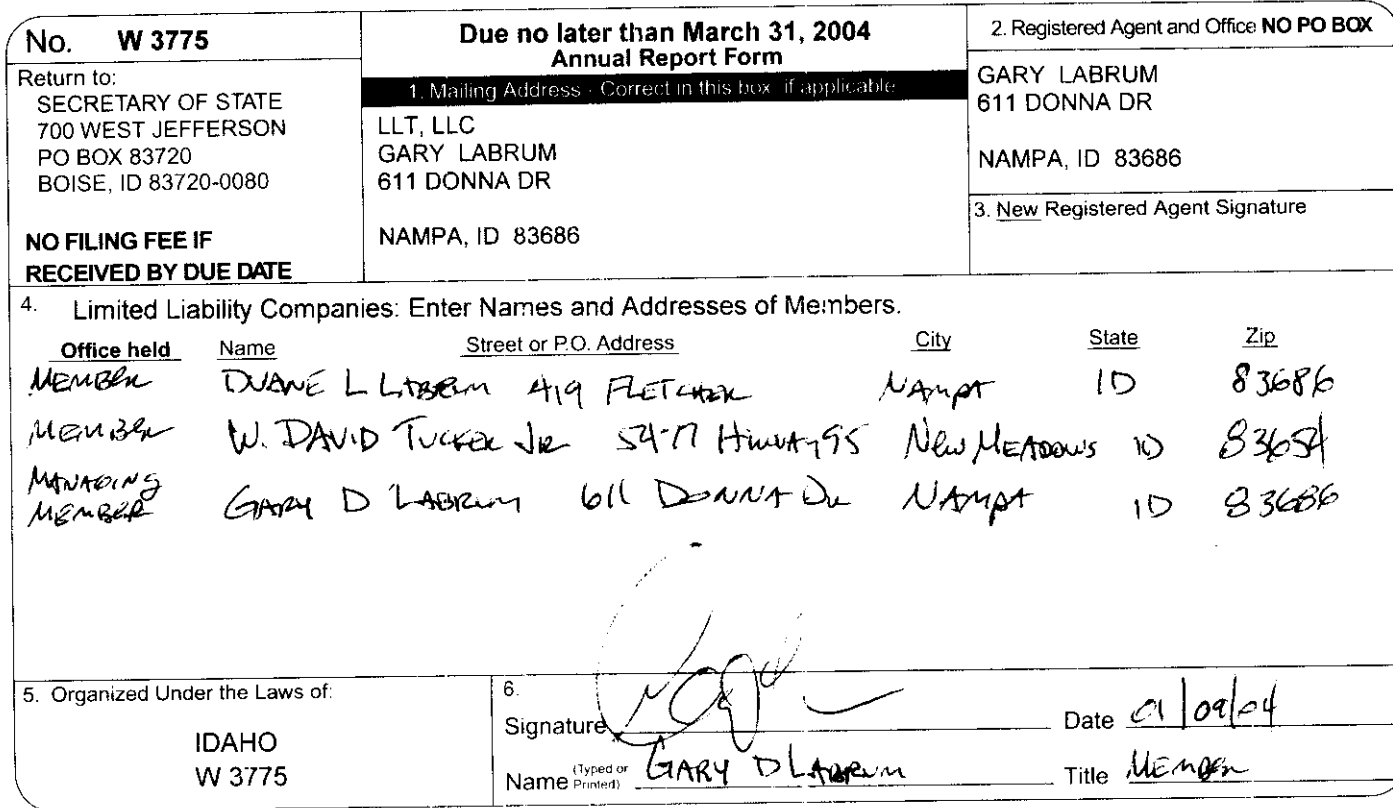 No. W 3775
Return to:
SECRETARY OF STATE
700 WEST JEFFERSON
PO BOX 83720
BOISE, ID 83720-0080
NO FILING FEE IF
RECEIVED BY DUE DATE
Due no later than March 31, 2004
Annual Report Form
1. Mailing Address - Correct in this box if applicable
LLT, LLC
GARY LABRUM
611 DONNA DR
NAMPA, ID 83686
2. Registered Agent and Office NO PO BOX
GARY LABRUM
611 DONNA DR
NAMPA, ID 83686
3. New Registered Agent Signature
4. Limited Liability Companies: Enter Names and Addresses of Members.
Office held Name Street or P.O. Address City State Zip
MEMBER DUANE L LABRUM 419 FLETCHER NAMPA ID 83686
MEMBER W. DAVID TUCKER JR HIWAY 95 NEW MEADOWS ID 83654
MANAGING
MEMBER GARY D LABRUM 611 DONNA DR NAMPA ID 83686
5. Organized Under the Laws of:
IDAHO
W 3775
6.
Signature Date 01/09/04
Name (Typed or Printed) GARY D LABRUM Title MEMBER